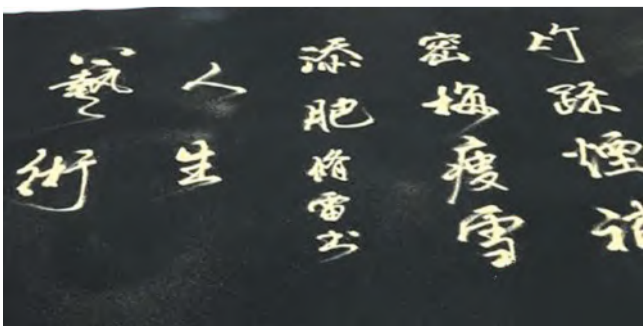 竹踈煙補
密梅瘦雪
添肥脩雷书
人生
藝術